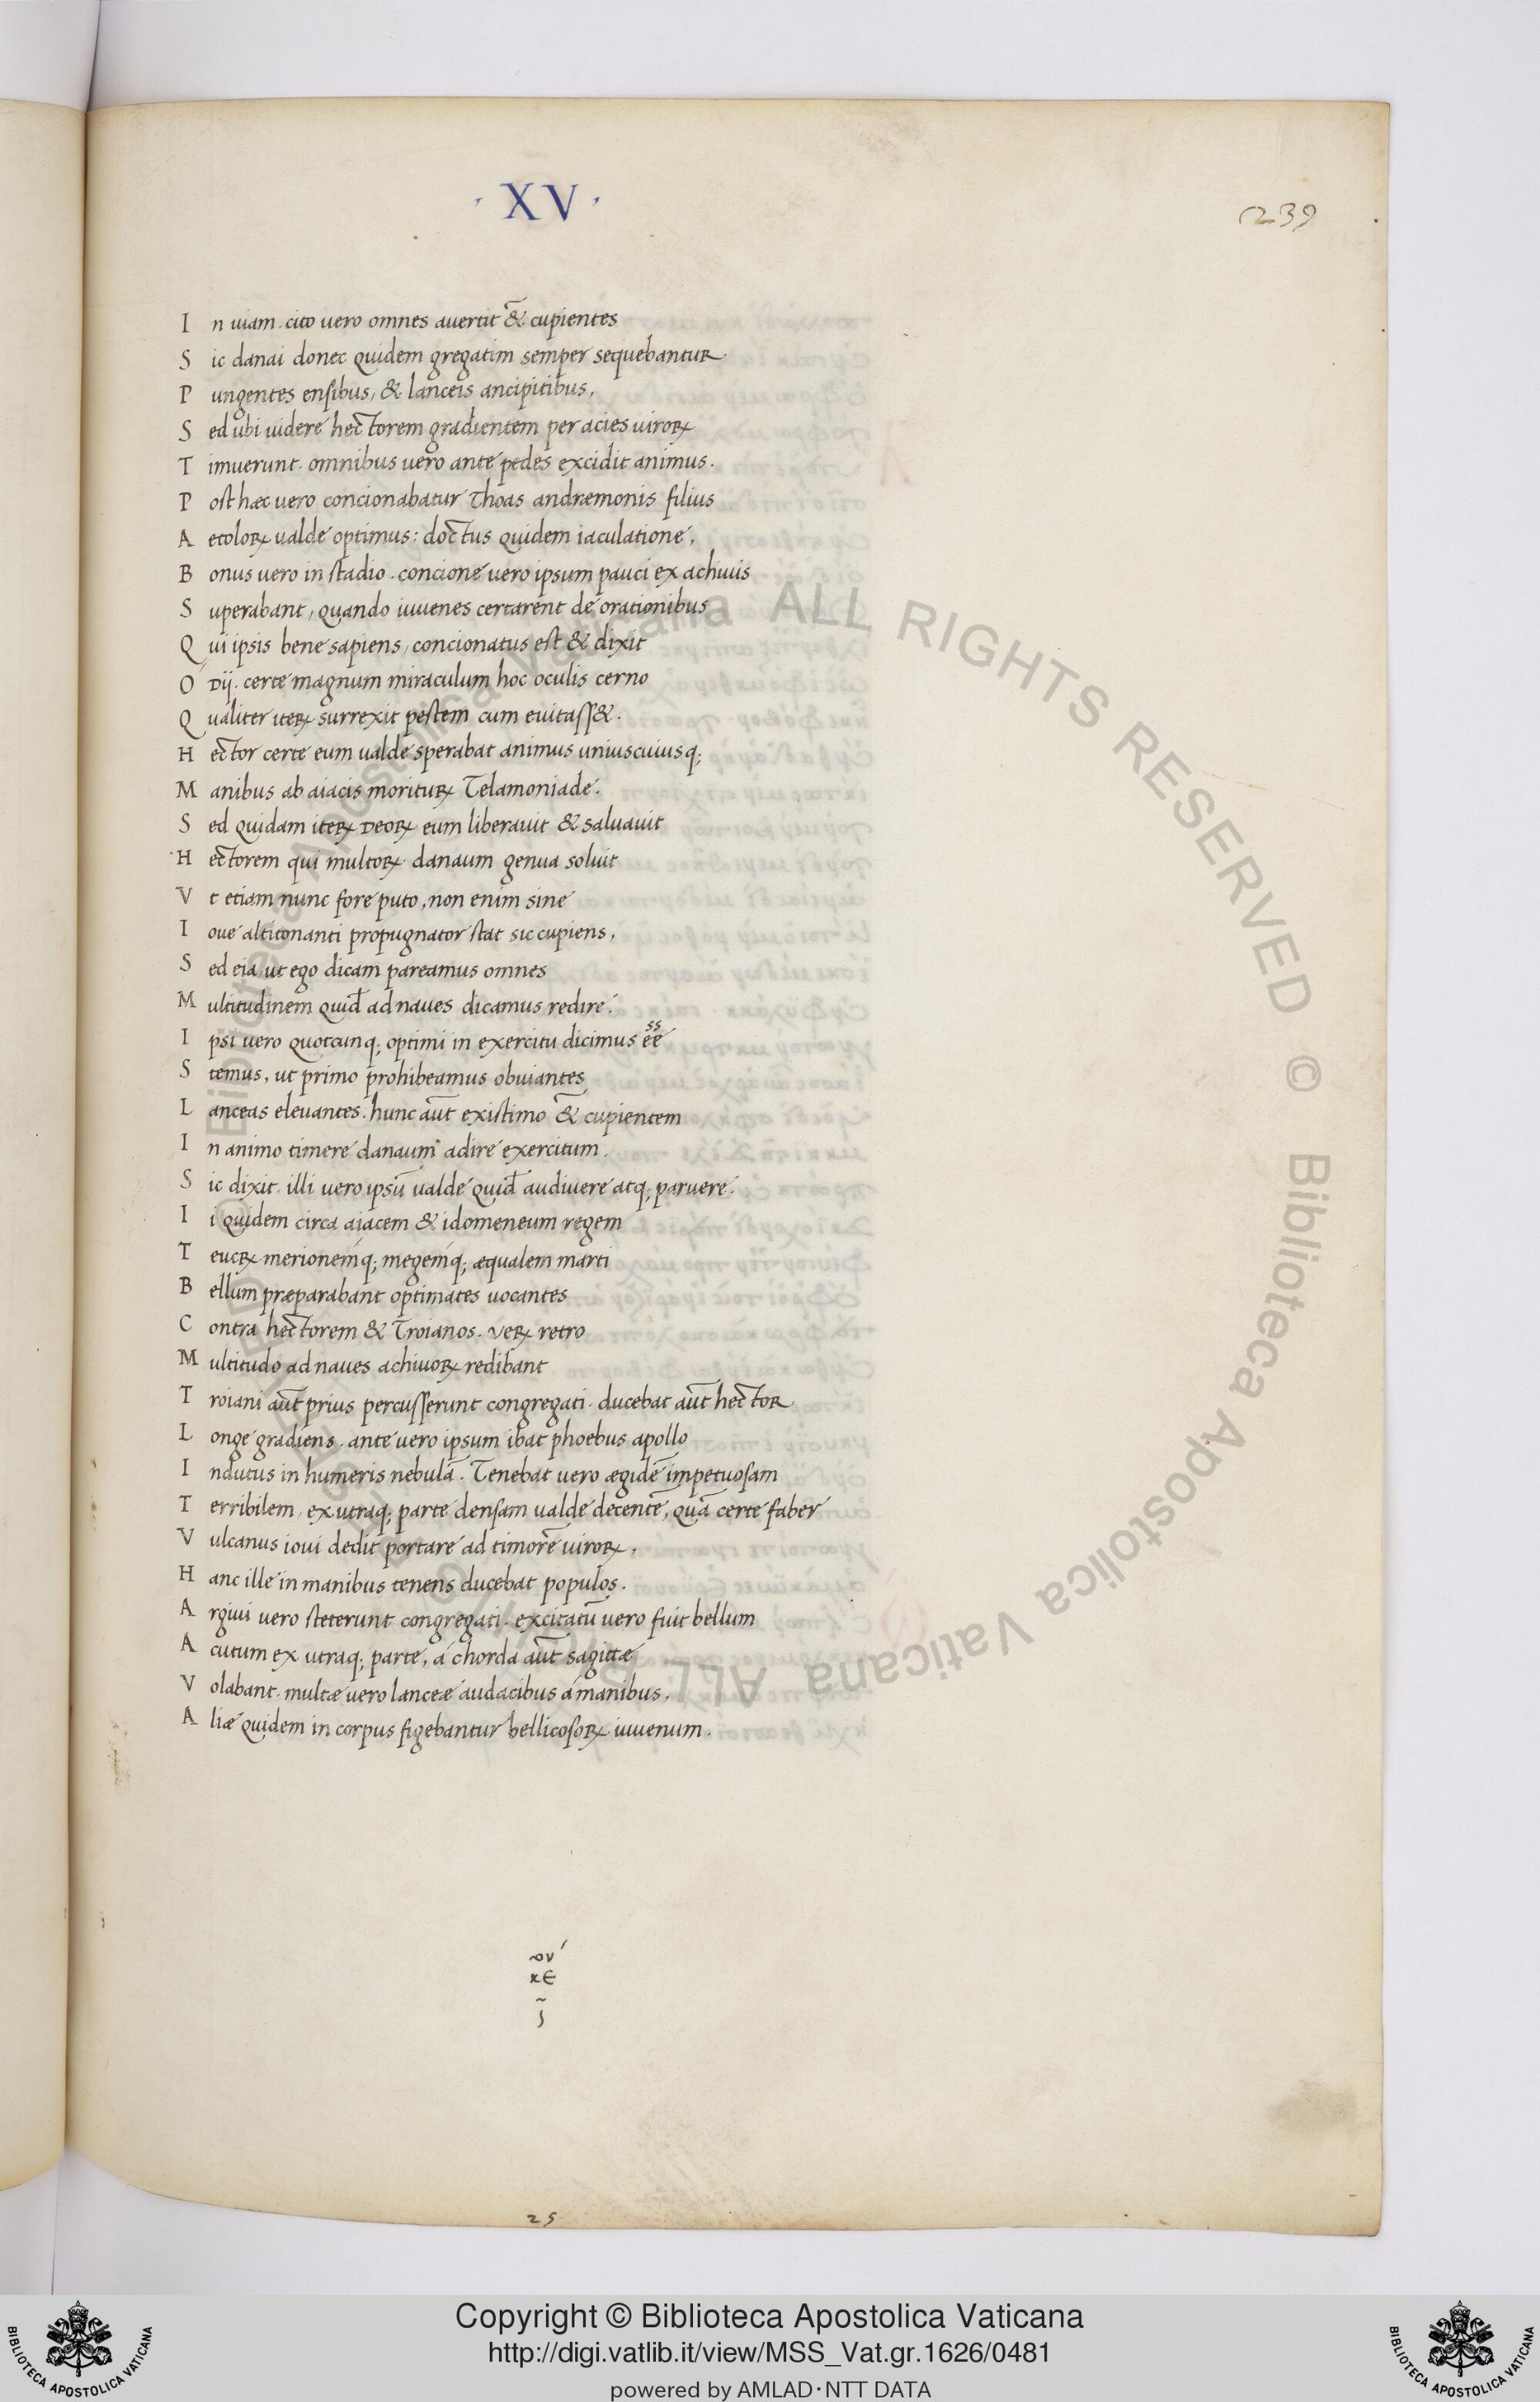 · XV ·
239
In uiam. cito uero omnes auertit & cupientes
Sic danai donec quidem gregatim semper sequebantur.
Pungentes ensibus, & lanceis ancipitibus,
Sed ubi uidere hectorem gradientem per acies uiroꝝ
Timuerunt. omnibus uero ante pedes excidit animus.
Post hæc uero concionabatur Thoas andræmonis filius
Aetoloꝝ ualde optimus: doctus quidem iaculatione,
Bonus uero in stadio. concione uero ipsum pauci ex achiuis
Superabant, quando iuuenes certarent de orationibus
Qui ipsis bene sapiens, concionatus est & dixit
O Dij. certe magnum miraculum hoc oculis cerno
Qualiter iteꝝ surrexit pestem cum euitass&.
Hector certe eum ualde sperabat animus uniuscuiusq;
Manibus ab aiacis morituꝝ Telamoniade.
Sed quidam iteꝝ Deoꝝ eum liberauit & saluauit
Hectorem qui multoꝝ danaum genua soluit
Vt etiam nunc fore puto, non enim sine
Ioue altitonanti propugnator stat sic cupiens,
Sed eia ut ego dicam pareamus omnes
Multitudinem quid̄ ad naues dicamus redire.
Ipsi uero quotcunq; optimi in exercitu dicimus ee
ss
Stemus, ut primo prohibeamus obuiantes
Lanceas eleuantes. hunc aūt existimo & cupientem
In animo timere danaum adire exercitum.
Sic dixit. illi uero ipsū ualde quid̄ audiuere atq; paruere.
Ii quidem circa aiacem & idomeneum regem
Teucꝝ merionemq; megemq; æqualem marti
Bellum præparabant optimates uocantes
Contra hectorem & Troianos. veꝝ retro
Multitudo ad naues achiuoꝝ redibant
Troiani aūt prius percusserunt congregati. ducebat aūt hector
Longe gradiens. ante uero ipsum ibat phoebus apollo
Indutus in humeris nebulā. Tenebat uero ægidē impetuosam
Terribilem, ex utraq; parte densam ualde decentē, quā certe faber
Vulcanus ioui dedit portare ad timorē uiroꝝ,
Hanc ille in manibus tenens ducebat populos.
Argiui uero steterunt congregati. excitatū uero fuit bellum
Acutum ex utraq; parte, a chorda aūt sagittæ
Volabant. multæ uero lanceæ audacibus a manibus,
Aliæ quidem in corpus figebantur bellicosoꝝ iuuenum.
25
Copyright © Biblioteca Apostolica Vaticana
http://digi.vatlib.it/view/MSS_Vat.gr.1626/0481
powered by AMLAD·NTT DATA
BIBLIOTECA APOSTOLICA VATICANA
BIBLIOTECA APOSTOLICA VATICANA
© Biblioteca Apostolica Vaticana ALL RIGHTS RESERVED © Biblioteca Apostolica Vaticana ALL RIGHTS RESERVED